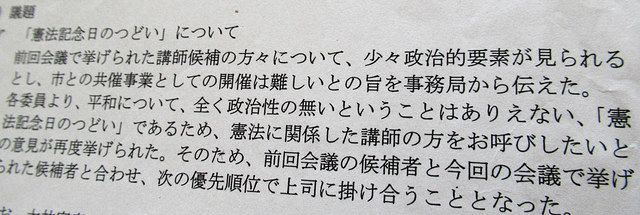 ）議題
「憲法記念日のつどい」について
前回会議で挙げられた講師候補の方々について、少々政治的要素が見られる
とし、市との共催事業としての開催は難しいとの旨を事務局から伝えた。
各委員より、平和について、全く政治性の無いということはありえない、「憲
法記念日のつどい」であるため、憲法に関係した講師の方をお呼びしたいと
の意見が再度挙げられた。そのため、前回会議の候補者と今回の会議で挙げ
られた候補者と合わせ、次の優先順位で上司に掛け合うこととなった。